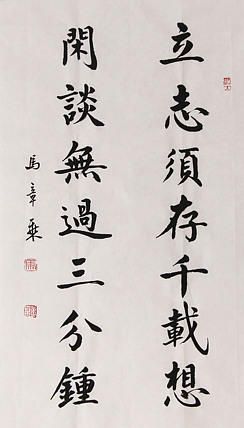 立志須存千載想
閑談無過三分鍾
馬章乘